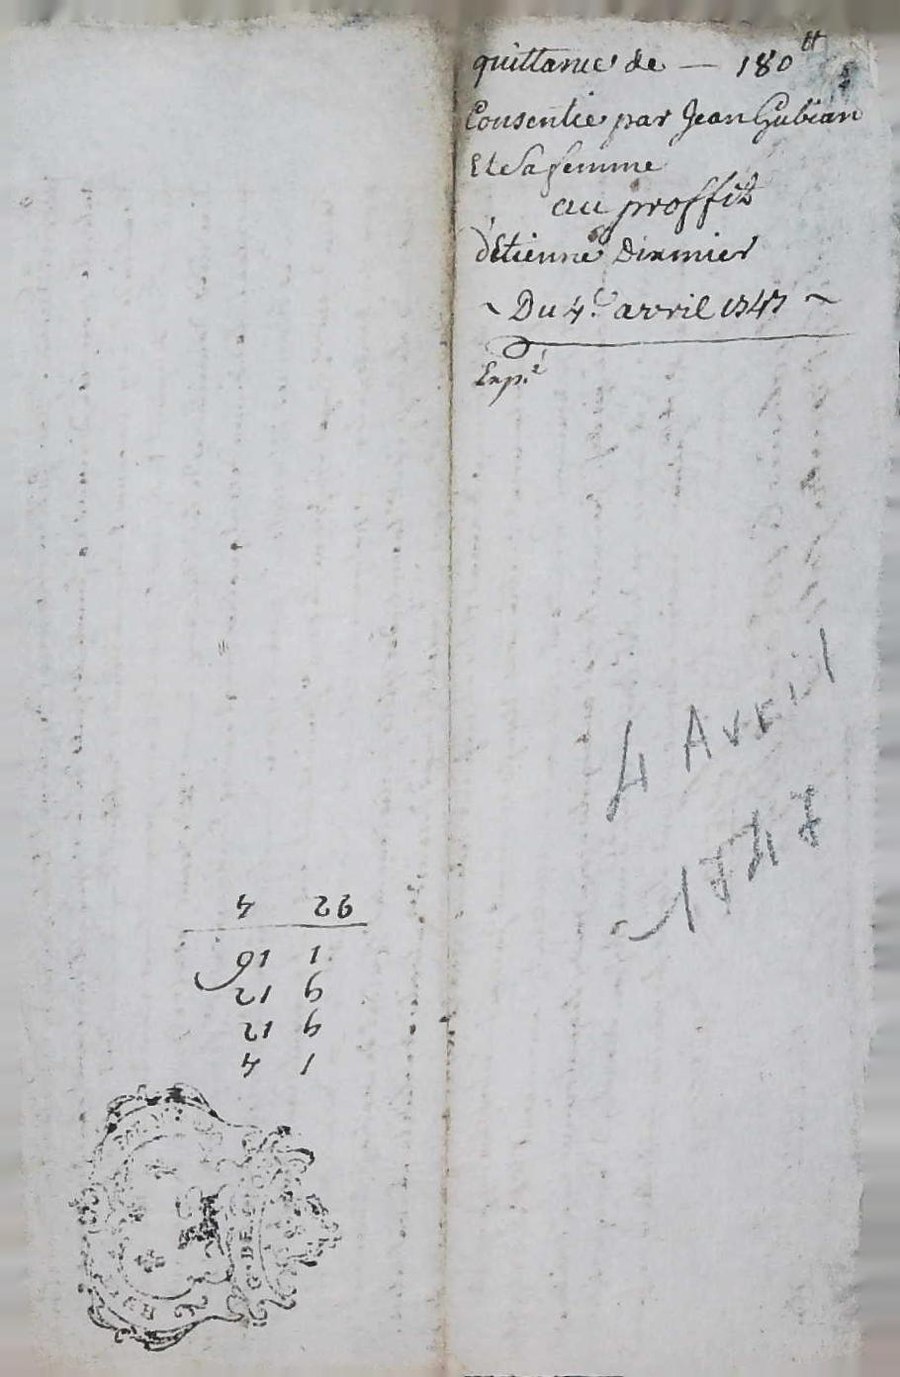 quittance de — 180 ₶
Consentie par Jean Gubian
Et Sa femme
au proffit
d'Etienne Dixmier
~ Du 4.e avril 1747 ~
Exp.é
4 Avril
1747
1 4
9 12
9 12
1 16
22 4